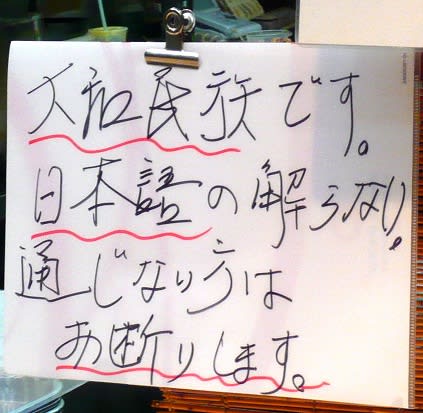 大和民族です。
日本語の解らない、
通じない方は
お断りします。